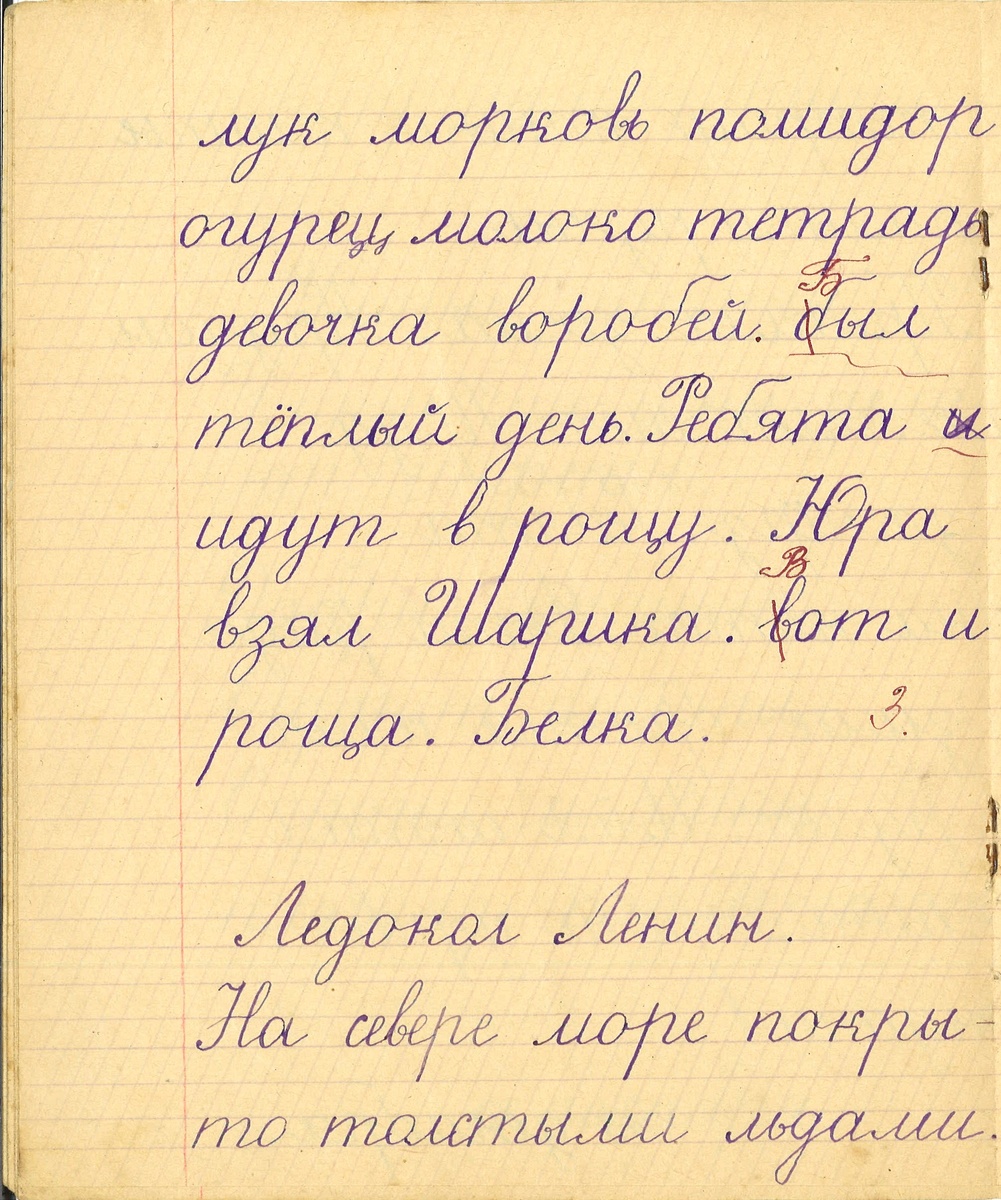 лук морковь помидор
огурец молоко тетрадь
девочка воробей. Был
тёплый день. Ребята и
идут в рощу. Юра
взял Шарика. Вот и
роща. Белка. 3.
Ледокол Ленин.
На севере море покры-
то толстыми льдами.